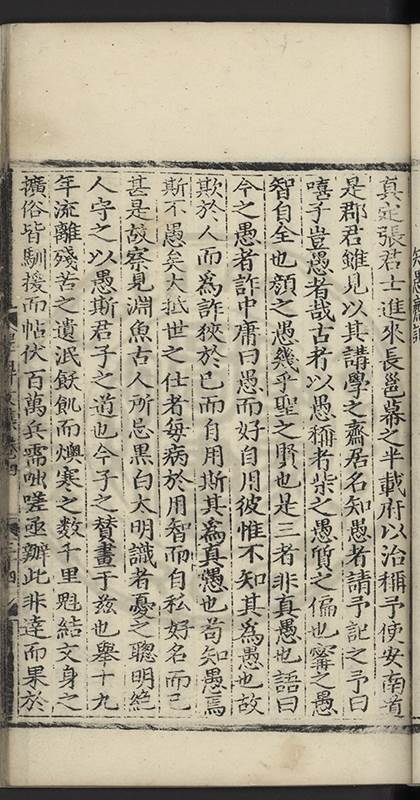 真定張君士進來長邕幕之半載府以治稱予使安南道
是郡君雖見以其講學之齋居名知愚者請予記之予曰
嘻子豈愚者哉古者以愚稱者柴之愚質之偏也甯之愚
智自全也顔之愚幾乎聖之賢也是三者非真愚也語曰
今之愚者詐中庸曰愚而好自用彼惟不知其爲愚也故
欺於人而爲詐狹於己而自用斯其爲真愚也苟知愚焉
斯不愚矣大抵世之仕者每病於用智而自私好名而已
甚是故察見淵魚古人所忌黒白太明識者憂之聰明絶
人守之以愚斯君子之道也今子之賛畫于兹也舉十九
年流離殘苦之遺氓飫飢而燠寒之数千里魁結文身之
獷俗皆馴援而帖伏百萬兵需咄嗟亟辦此非達而果於